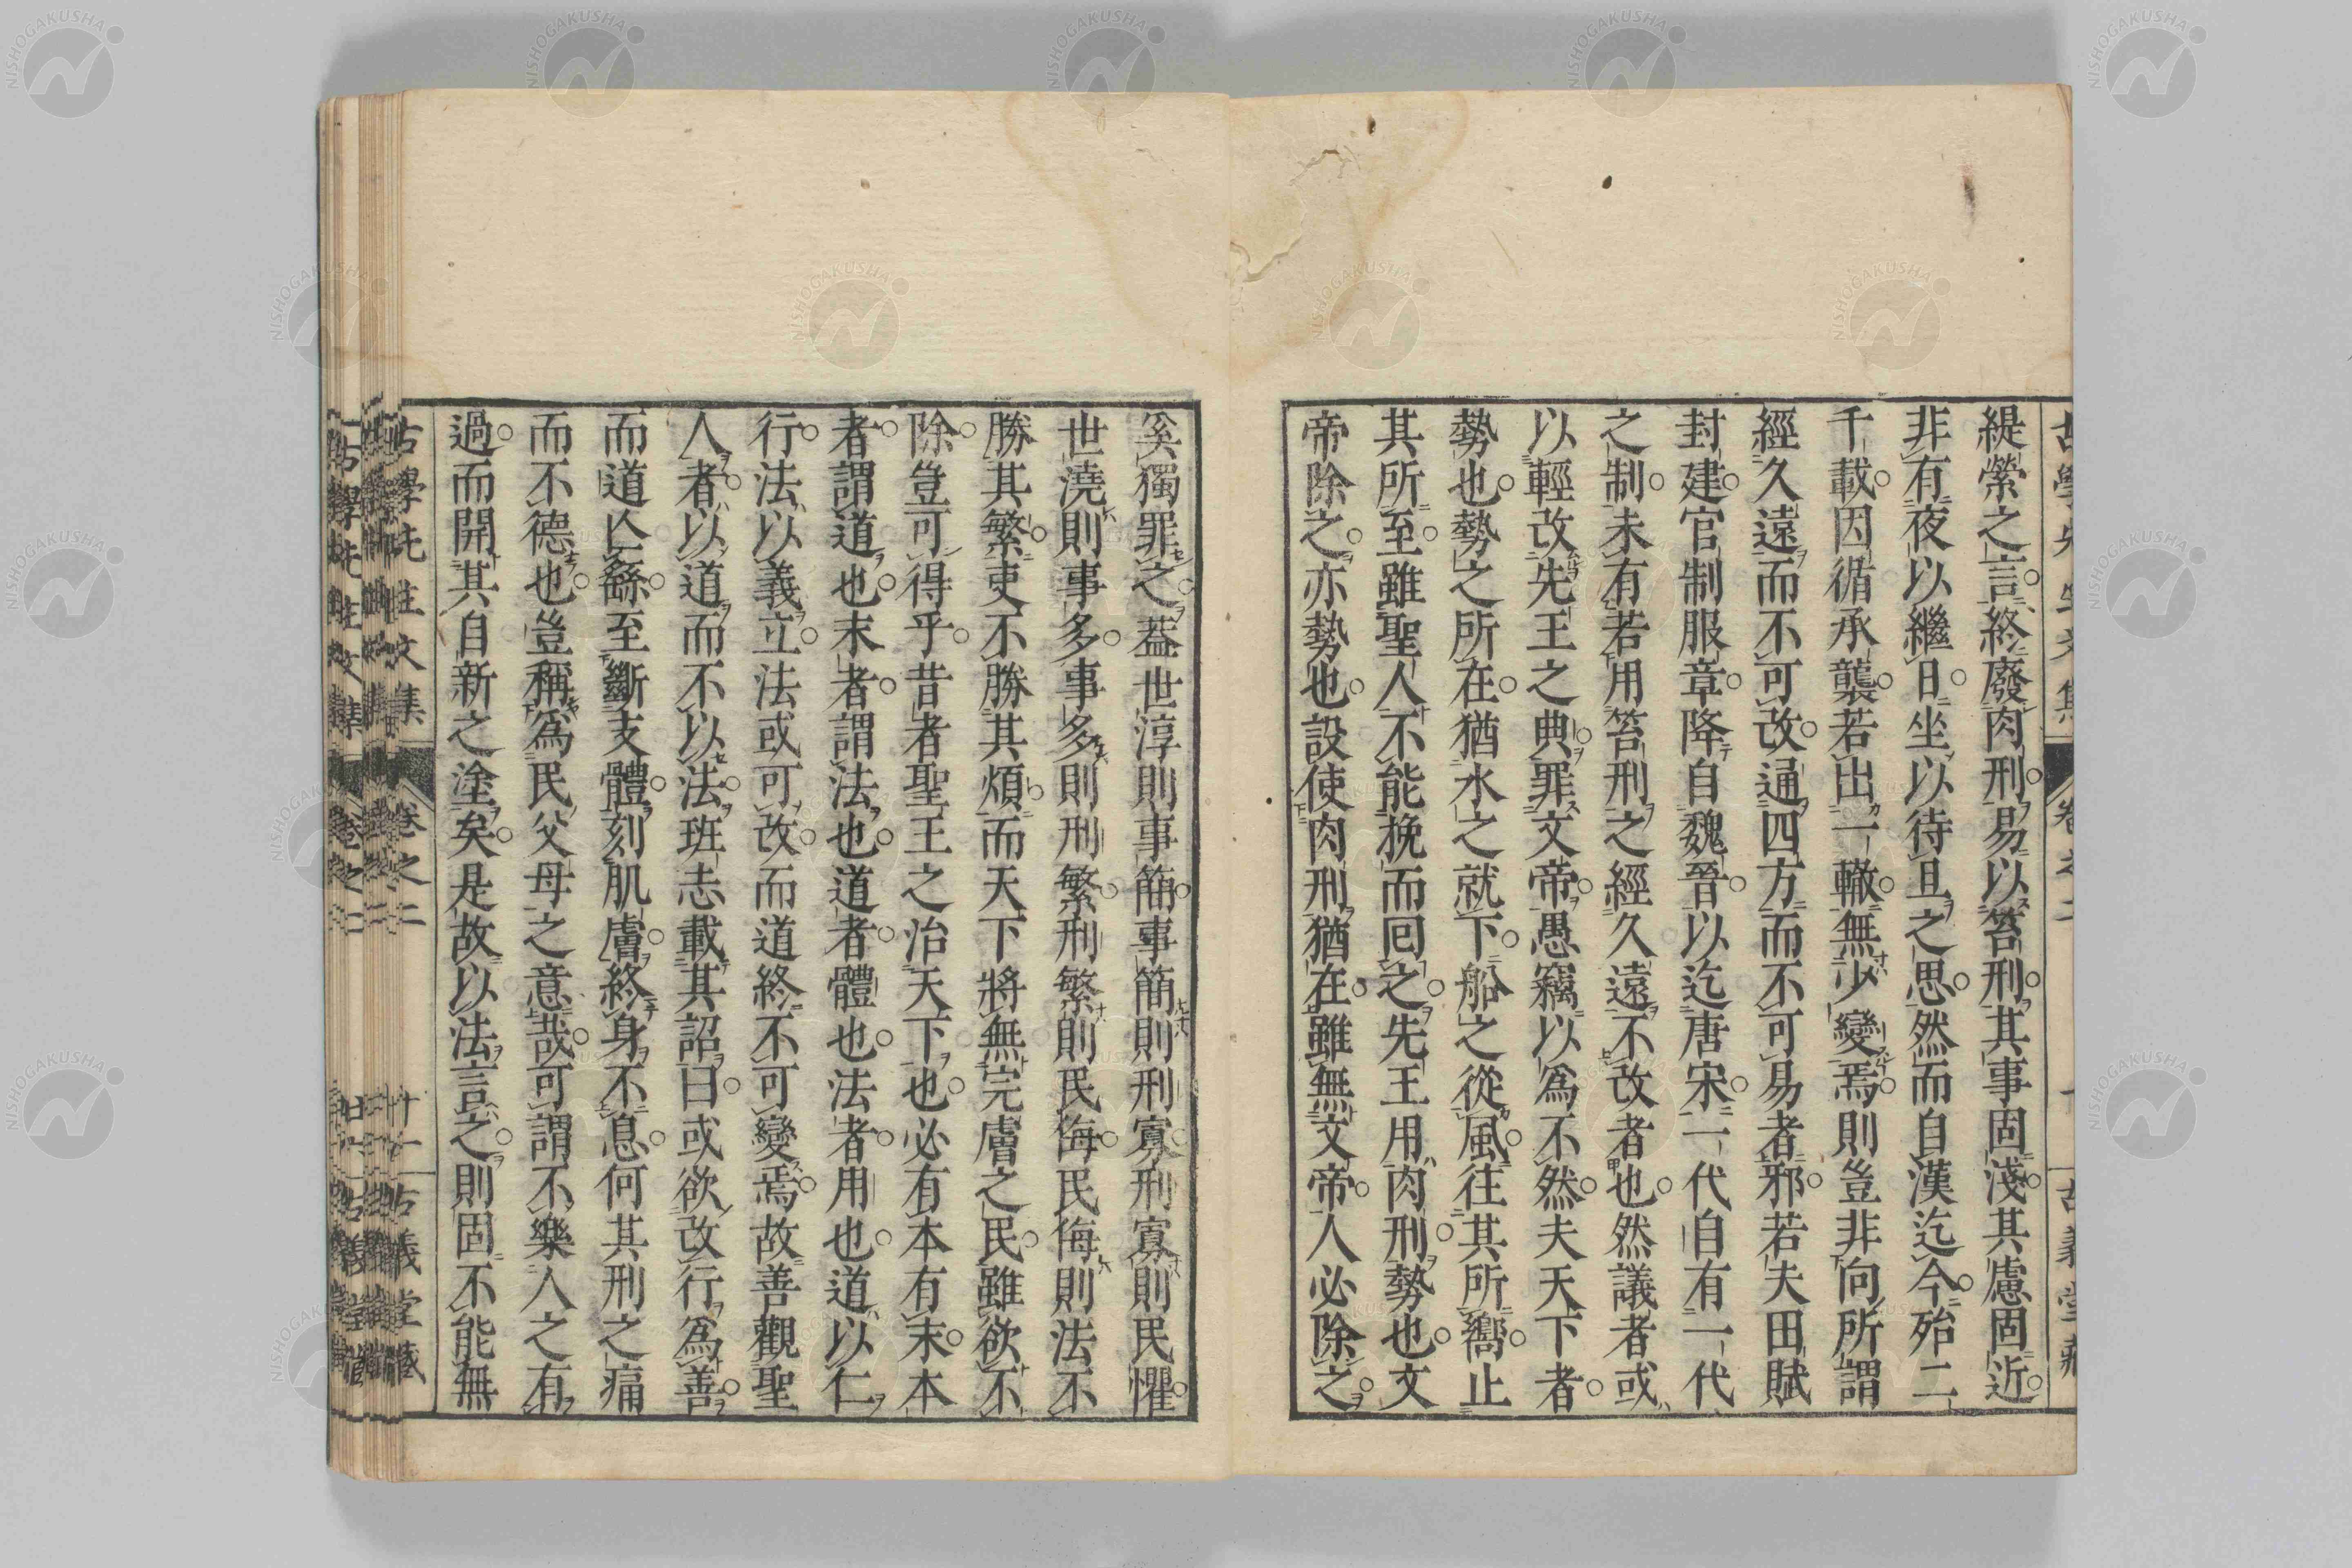 緹縈之言終廢肉刑易以笞刑其事固淺其慮固近
非有夜以繼日坐以待旦之思然而自漢迄今殆二
千載因循承襲若出一轍無少變焉則豈非向所謂
經久遠而不可改通四方而不可易者邪若夫田賦
封建官制服章降自魏晉以迄唐宋一代自有一代
之制未有若用笞刑之經久遠不改者也然議者或
以輕改先王之典罪文帝愚竊以爲不然夫天下者
勢也勢之所在猶水之就下船之從風往其所嚮止
其所至雖聖人不能挽而回之先王用肉刑勢也文
帝除之亦勢也設使肉刑猶在雖無文帝人必除之
奚獨罪之葢世淳則事簡事簡則刑寡刑寡則民懼
世澆則事多事多則刑繁刑繁則民侮民侮則法不
勝其繁吏不勝其煩而天下將無完膚之民雖欲不
除豈可得乎昔者聖王之治天下也必有本有末本
者謂道也末者謂法也道者體也法者用也道以仁
行法以義立法或可改而道終不可變焉故善觀聖
人者以道而不以法班志載其詔曰或欲改行爲善
而道亾繇至斷支體刻肌膚終身不息何其刑之痛
而不德也豈稱爲民父母之意哉可謂不樂人之有
過而開其自新之塗矣是故以法言之則固不能無
古學先生文集 卷之二 古義堂藏
NISHOGAKUSHA